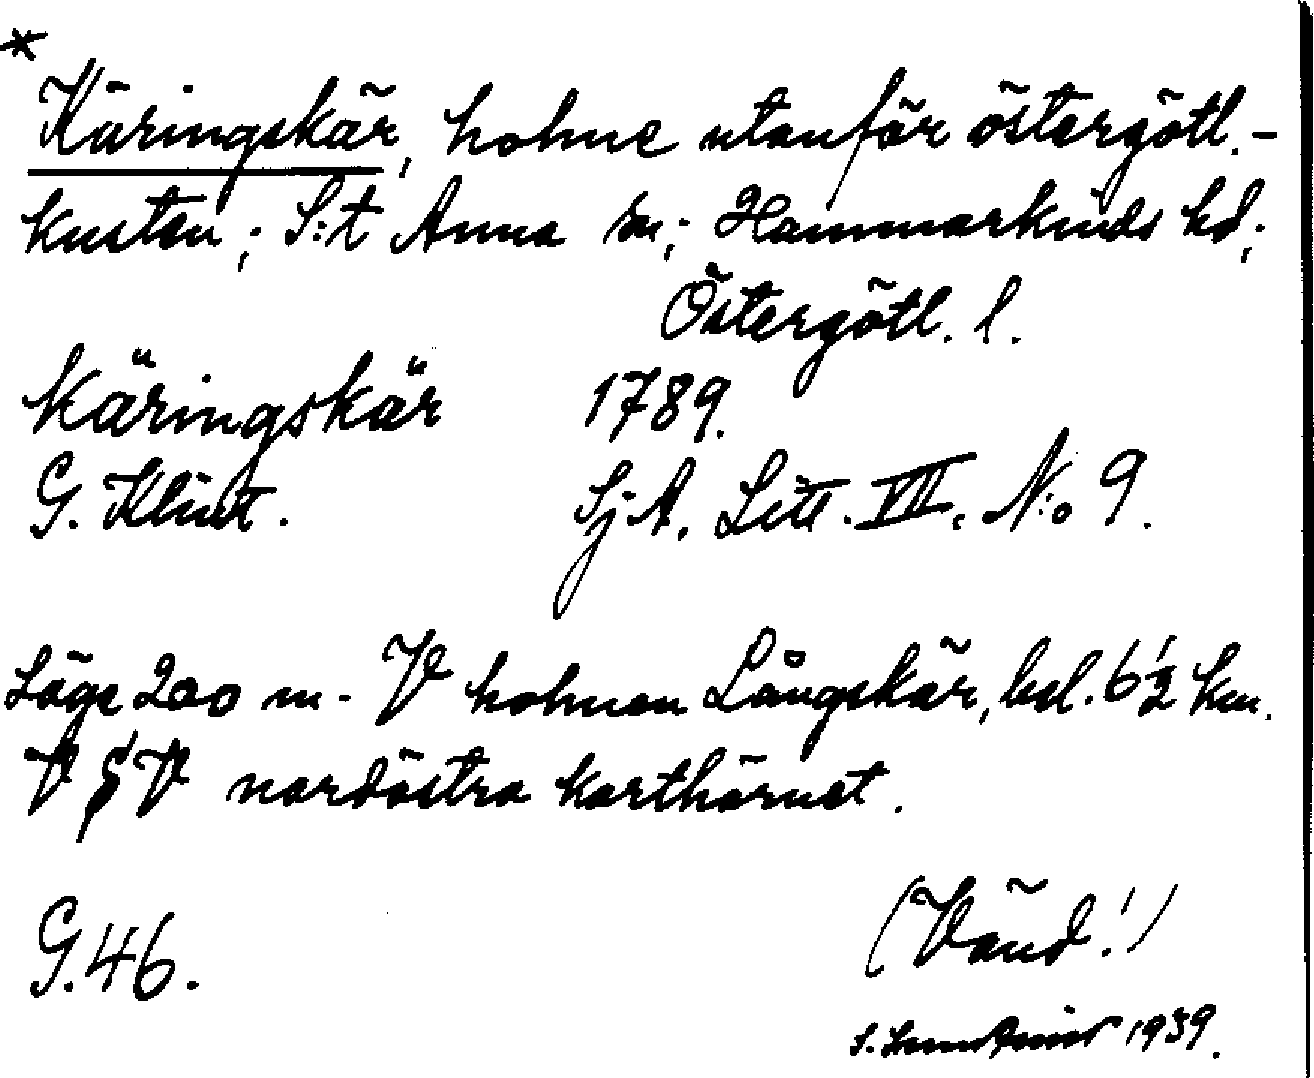 *
Käringskär, holme utanför östergötl.-
kusten; S:t Anna sn; Hammarkinds hd;
Östergötl. l.
Käringskär 1789.
G. Klint. Sj.A. Litt. VII. N:o 9.
Läge 200 m. V holmen Långskär, bel. 6½ km.
V § V nordöstra karthörnet.
G.46.
(Vänd!)
S. 1939.